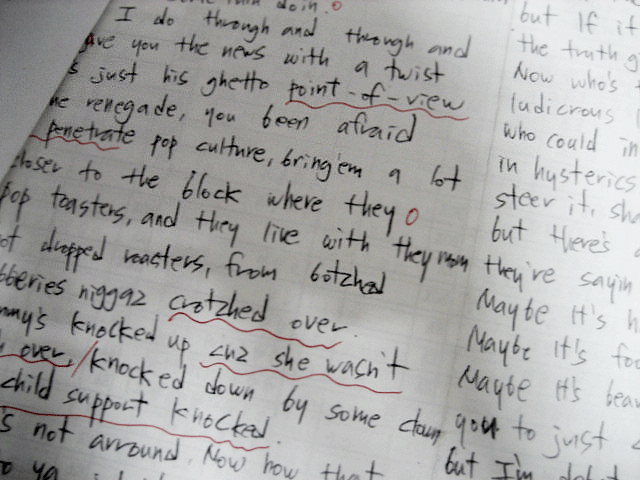 doin.
I do through and through and
ave you the news with a twist
s just his ghetto point-of-view
he renegade, you been afraid
penetrate pop culture, bring'em a lot
closer to the block where they
pop toasters, and they live with they mom
ot dropped roasters, from botzhed
bberies niggaz crotzhed over.
mmy's knocked up cuz she wasn't
over, knocked down by some clown
child support knocked.
s not arround. Now how that
o ya
but If it
the truth g
Now who's
ludicrous
who could in
in hysterics
steer it, sha
but there's a
they're sayin
Maybe It's h
Maybe It's foo
Maybe It's beau
you to just
but I'm